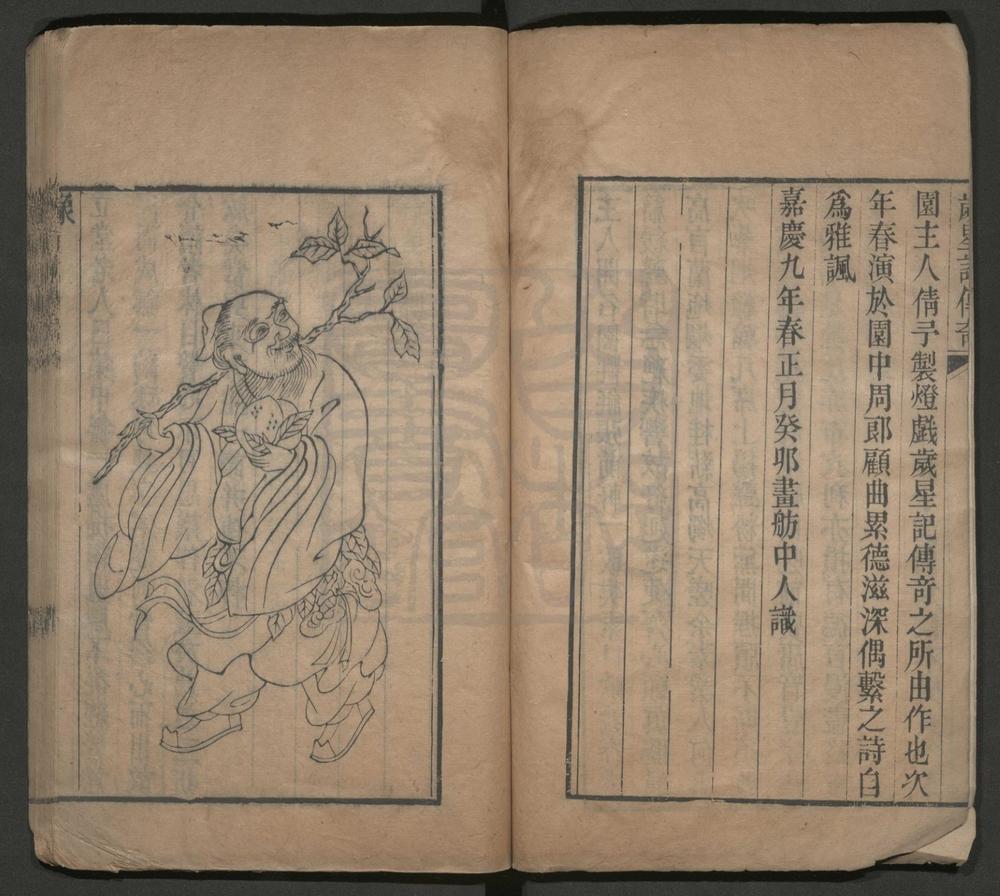 歲星記傳奇
園主人倩予製燈戲歲星記傳奇之所由作也次
年春演於園中周郎顧曲累德滋深偶繫之詩自
爲雅諷
嘉慶九年春正月癸卯畫舫中人識
像